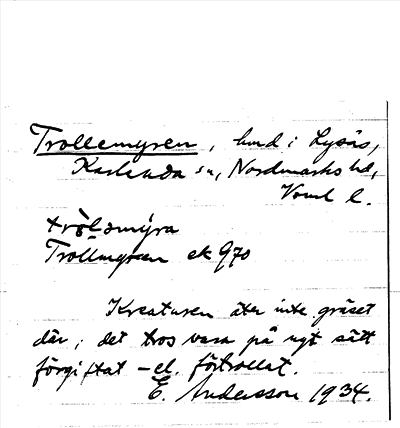 Trollemyren, hmd i Lysås,
Karlanda sn, Nordmarks hd,
Vrml l.
trò̀lәmýra
Trollmyren ek 970
Kreaturen äter inte gräset
där, det tros vara på ngt sätt
förgiftat – el. förtrollat.
E. Andersson 1934.